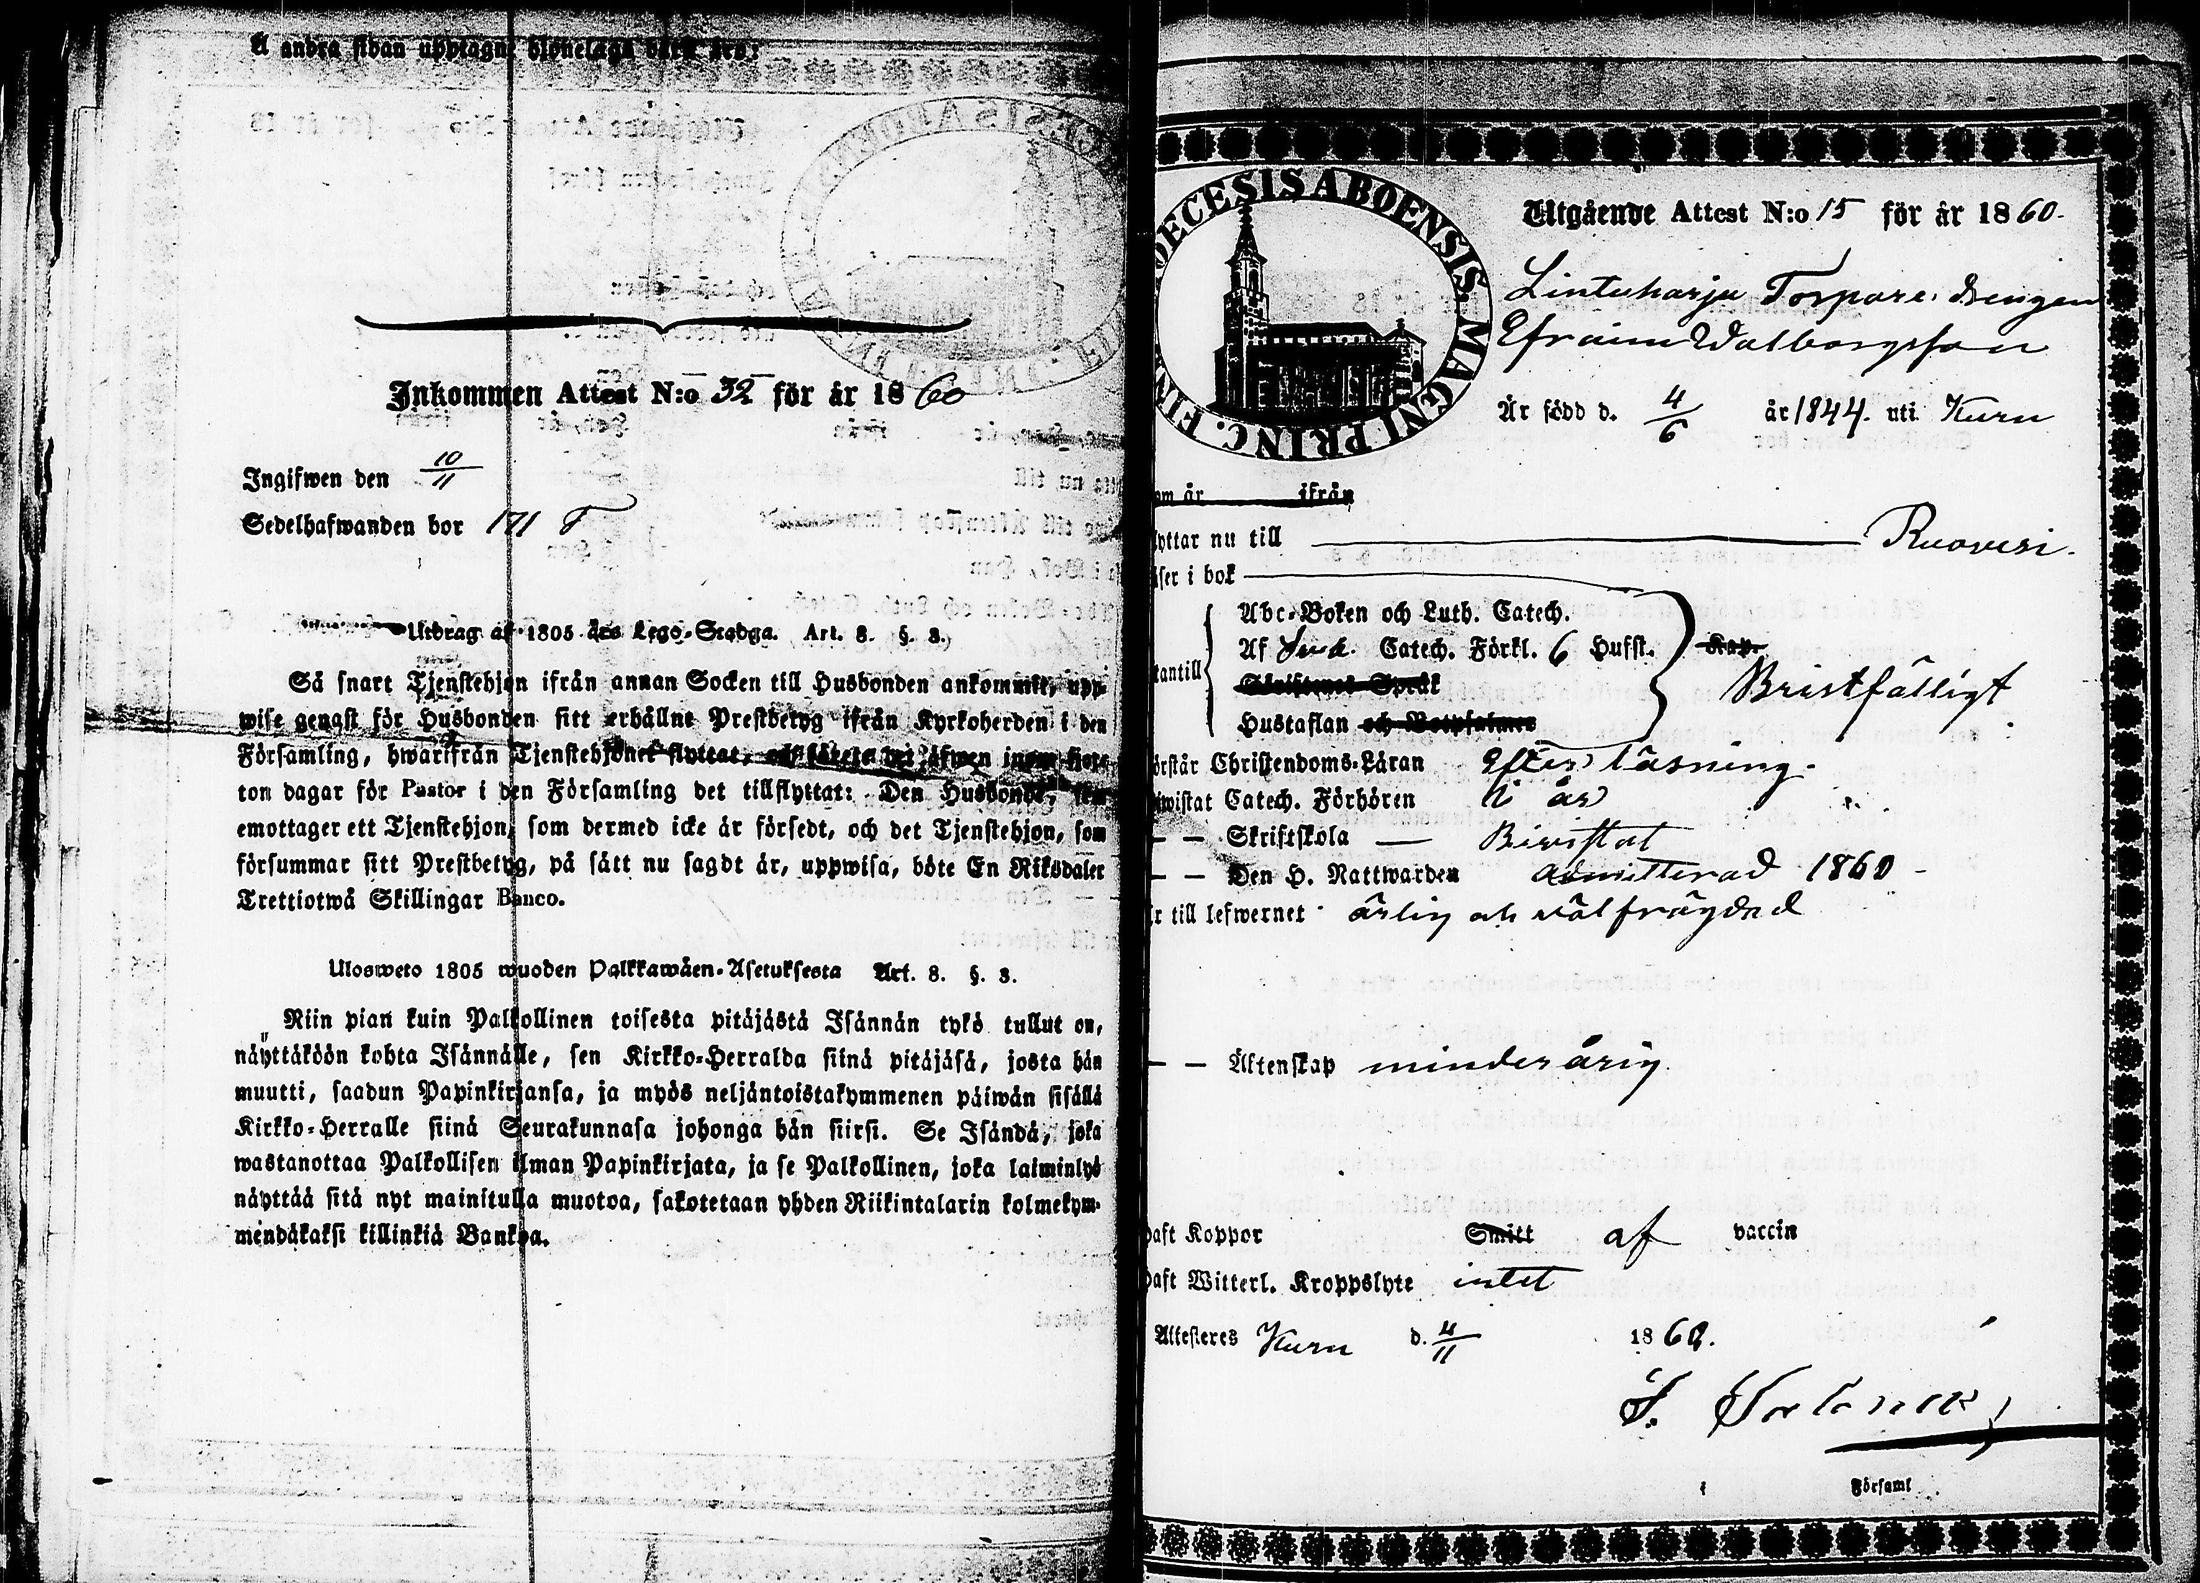 Å andra sidan upptagne
Inkommen Attest N:o 32 för år 1860
Ingifwen den 10/11
Sedelhafwanden bor 171 F
Utdrag af 1805 års Lego-Stadga. Art. 8. §. 3.
Så snart Tjenstehjon ifrån annan Socken till Husbonden ankommit, upp-
wise genast för Husbonden sitt erhållne Prestbetyg ifrån Kyrkoherden i den
Församling, hwarifrån Tjenstehjonet flyttat, och äfwen inom fjor-
ton dagar för Pastor i den Församling det tillflyttat: Den Husbonde, som
emottager ett Tjenstehjon, som dermed icke är försedt, och det Tjenstehjon, som
försummar sitt Prestbetyg, på sätt nu sagdt är, uppwisa, böte En Riksdaler
Trettiotwå Skillingar Banco.
Ulosweto 1805 wuoden Palkkawäen-Asetuksesta Art. 8. §. 3.
Niin pian kuin Palkollinen toisesta pitäjästä Isännän tykö tullut on,
näyttäköön kohta Isännälle, sen Kirkko-Herralda siinä pitäjäsä, josta hän
muutti, saadun Papinkirjansa, ja myös neljäntoistakymmenen päiwän sisällä
Kirkko-Herralle siinä Seurakunnasa johonga hän siirsi. Se Isändä, joka
wastanottaa Palkollisen ilman Papinkirjata, ja se Palkollinen, joka laiminlyö
näyttää sitä nyt mainitulla muotoa, sakotetaan yhden Riikintalarin kolmekym-
mendäkaksi killinkiä Bankoa.
DECESIS ABOENSIS. MAGNI PRINC. FIN
Utgående Attest N:o 15 för år 1860.
Lintuharju Torpare drengen
Efraim Walborgsson
Är född d. 4/6 år 1844. uti Kuru
om år ifrån
lyttar nu till Ruovesi.
äser i bok
Abc-Boken och Luth. Catech.
Af Sved. Catech. Förkl. 6 Hufst. Kap.
tantill Skriftenes Språk Bristfälligt
Hustaflan och Botpsalmer
örstår Christendoms-Läran Efter läsning.
iwistat Catech. Förhören i år
— — Skriftskola — Bivistat
— — Den H. Nattwarden admitterad 1860
r till lefwernet ärlig och välfrägdad
— — Äktenskap minderårig
haft Koppor Smitt af vaccin
haft Witterl. Kroppslyte intet
Attesteres Kuru d. 4/11 1860.
i Församl